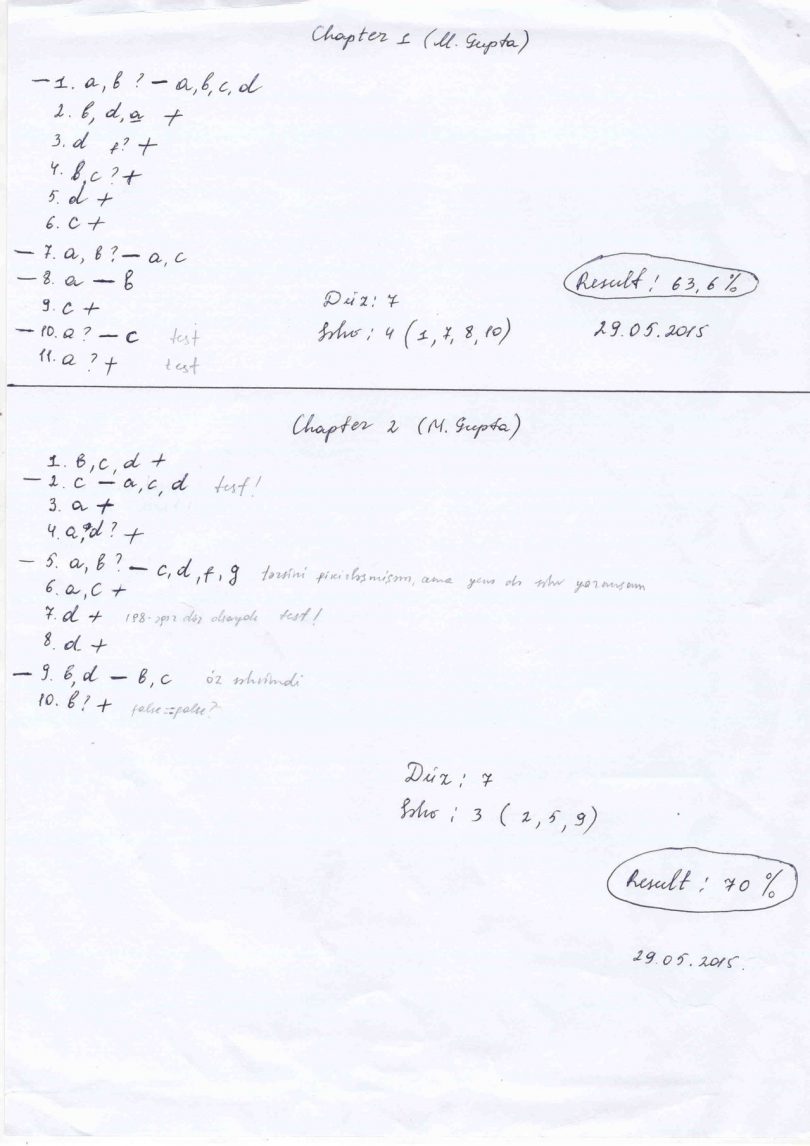 Chapter 1 (M. Gupta)
– 1. a, b ? – a, b, c, d
2. b, d, a +
3. d f? +
4. b, c ? +
5. d +
6. c +
– 7. a, b ? – a, c
– 8. a – b
9. c +
– 10. a ? – c test
11. a ? + test
Düz: 7
Səhv: 4 (1, 7, 8, 10)
Result: 63,6%
29.05.2015
Chapter 2 (M. Gupta)
1. b, c, d +
– 2. c – a, c, d test!
3. a +
4. a, d? +
– 5. a, b ? – c, d, f, g tərsini
6. a, c +
7. d + test!
8. d +
– 9. b, d – b, c öz səhvimdi
10. b? + false=false?
Düz: 7
Səhv: 3 (2, 5, 9)
Result: 70%
29.05.2015.